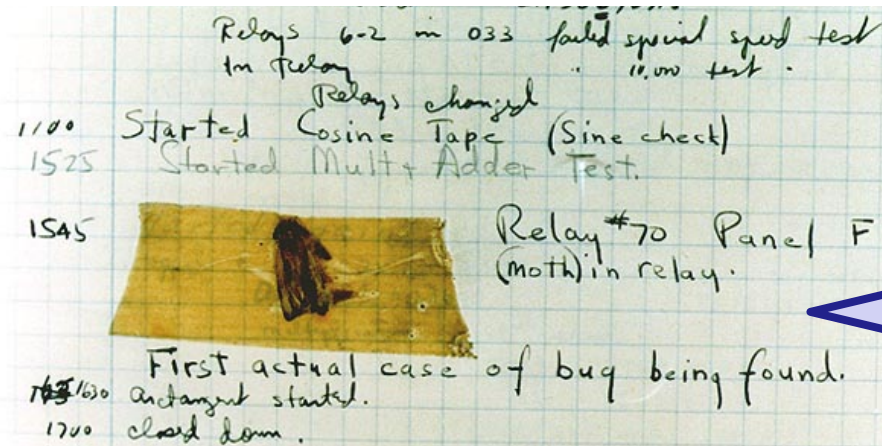 Relays 6-2 in 033 failed special speed test
In Relay " 10,000 test.
Relays changed
1100 Started Cosine Tape (Sine check)
1525 Started Mult+Adder Test.
1545 Relay #70 Panel F
(moth) in relay.
First actual case of bug being found.
1630 arctangent started.
1700 closed down.